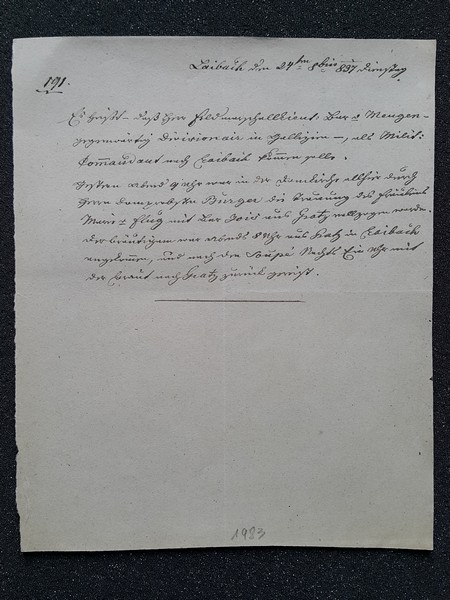 Laibach den 24ten 8bris 837. Dienstag
191.
Es heißt daß Herr Feldmarschallieut: Bar v Mengen –
gegenwärtig Divisionair in Gallizien –, als Milit:
Kommandant nach Laibach kommen solle.
Gestern abend Uhr war in der Domkirche allhier durch
Herrn Domprobsten Burger die Trauung des Fräulein
Marie v Pflug mit Bar aus Gratz vollzogen worden.
Der Bräutigam war abends 8 Uhr aus Gratz in Laibach
angekommen, und nach dem Soupé Nachts Ein Uhr mit
der Braut nach Gratz zurück gereist.
1923